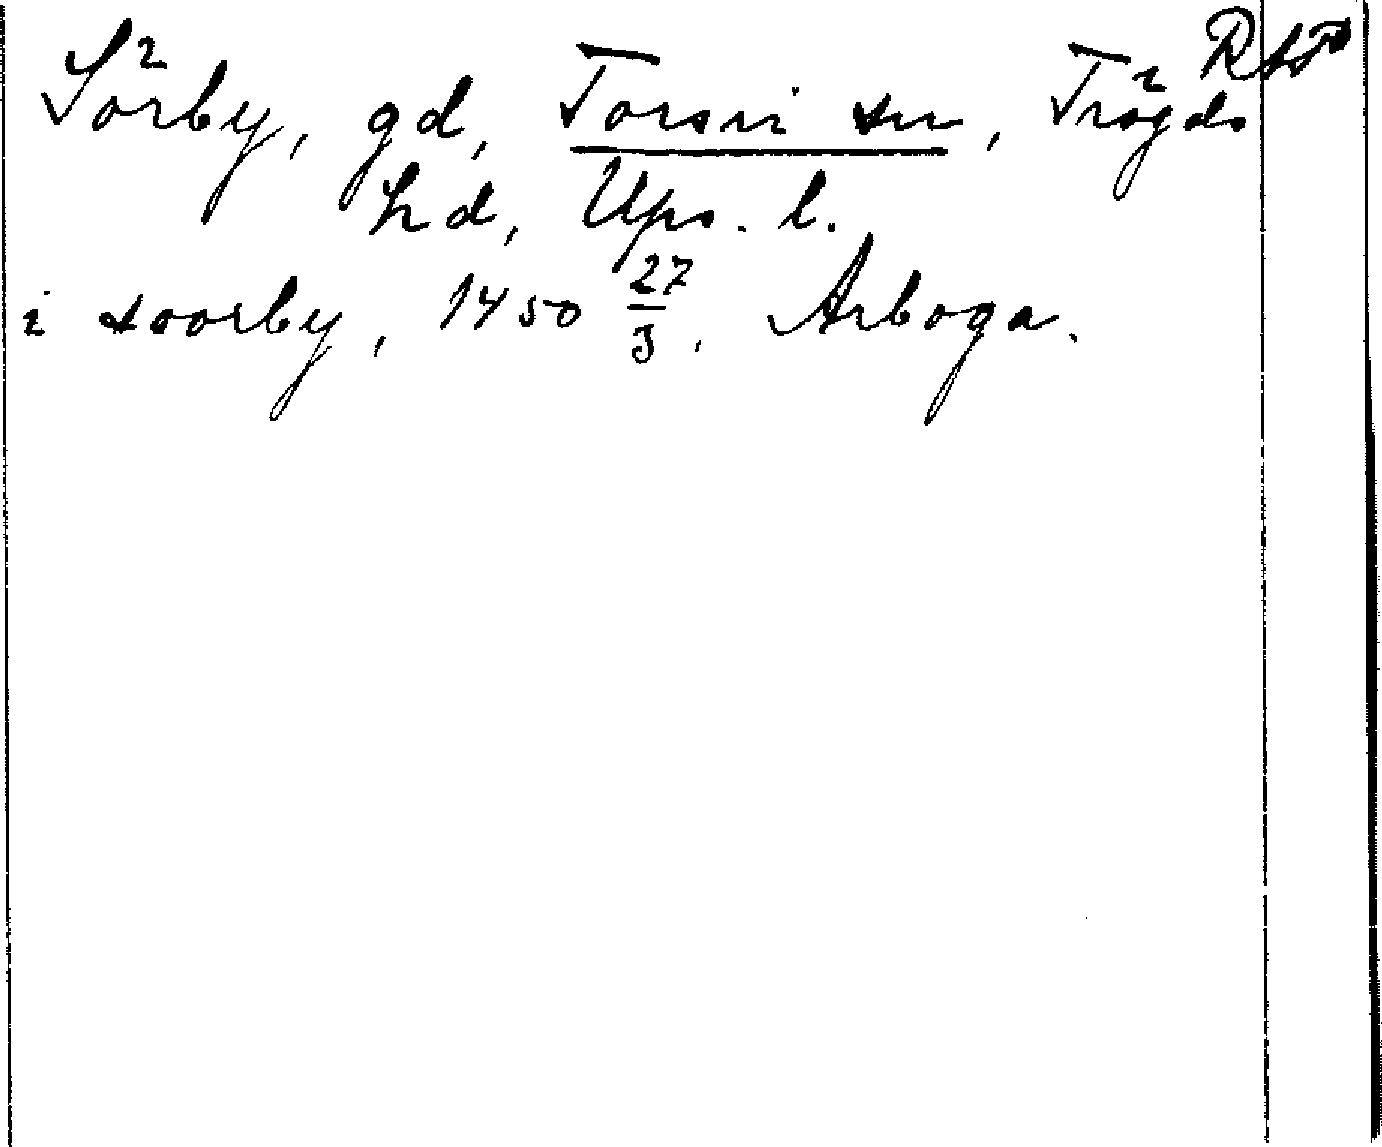 Sörby, gd, Torsvi sn, Trögds
hd, Ups. l.
i soorby, 1450 27/3, Arboga.